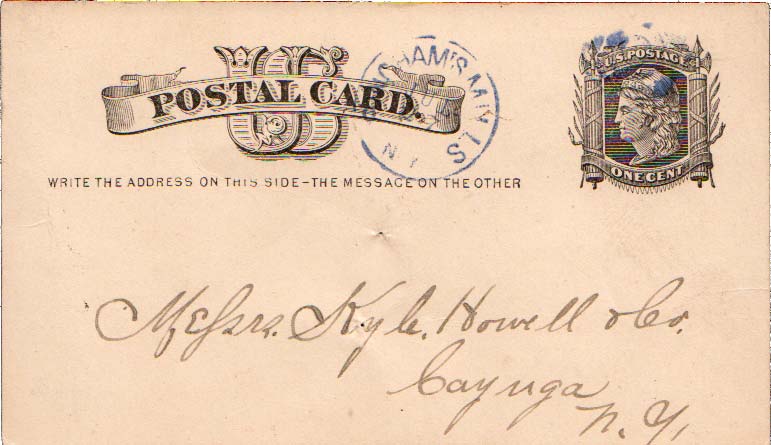 US
POSTAL CARD.
U.S. POSTAGE
ONE CENT
HAM'S MILLS
N.Y.
WRITE THE ADDRESS ON THIS SIDE–THE MESSAGE ON THE OTHER
Messrs. Kyle, Howell & Co.
Cayuga
N. Y.